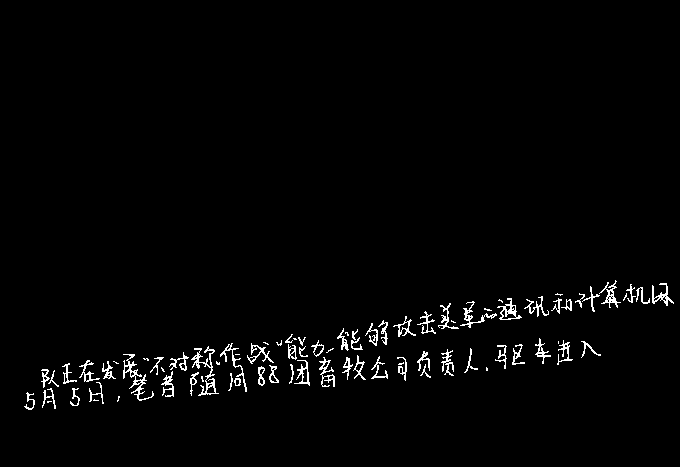 队正在发展“不对称作战”能力_能够攻击美军的通讯和计算机网
5月5日,笔者随同88团畜牧公司负责人,驱车进入